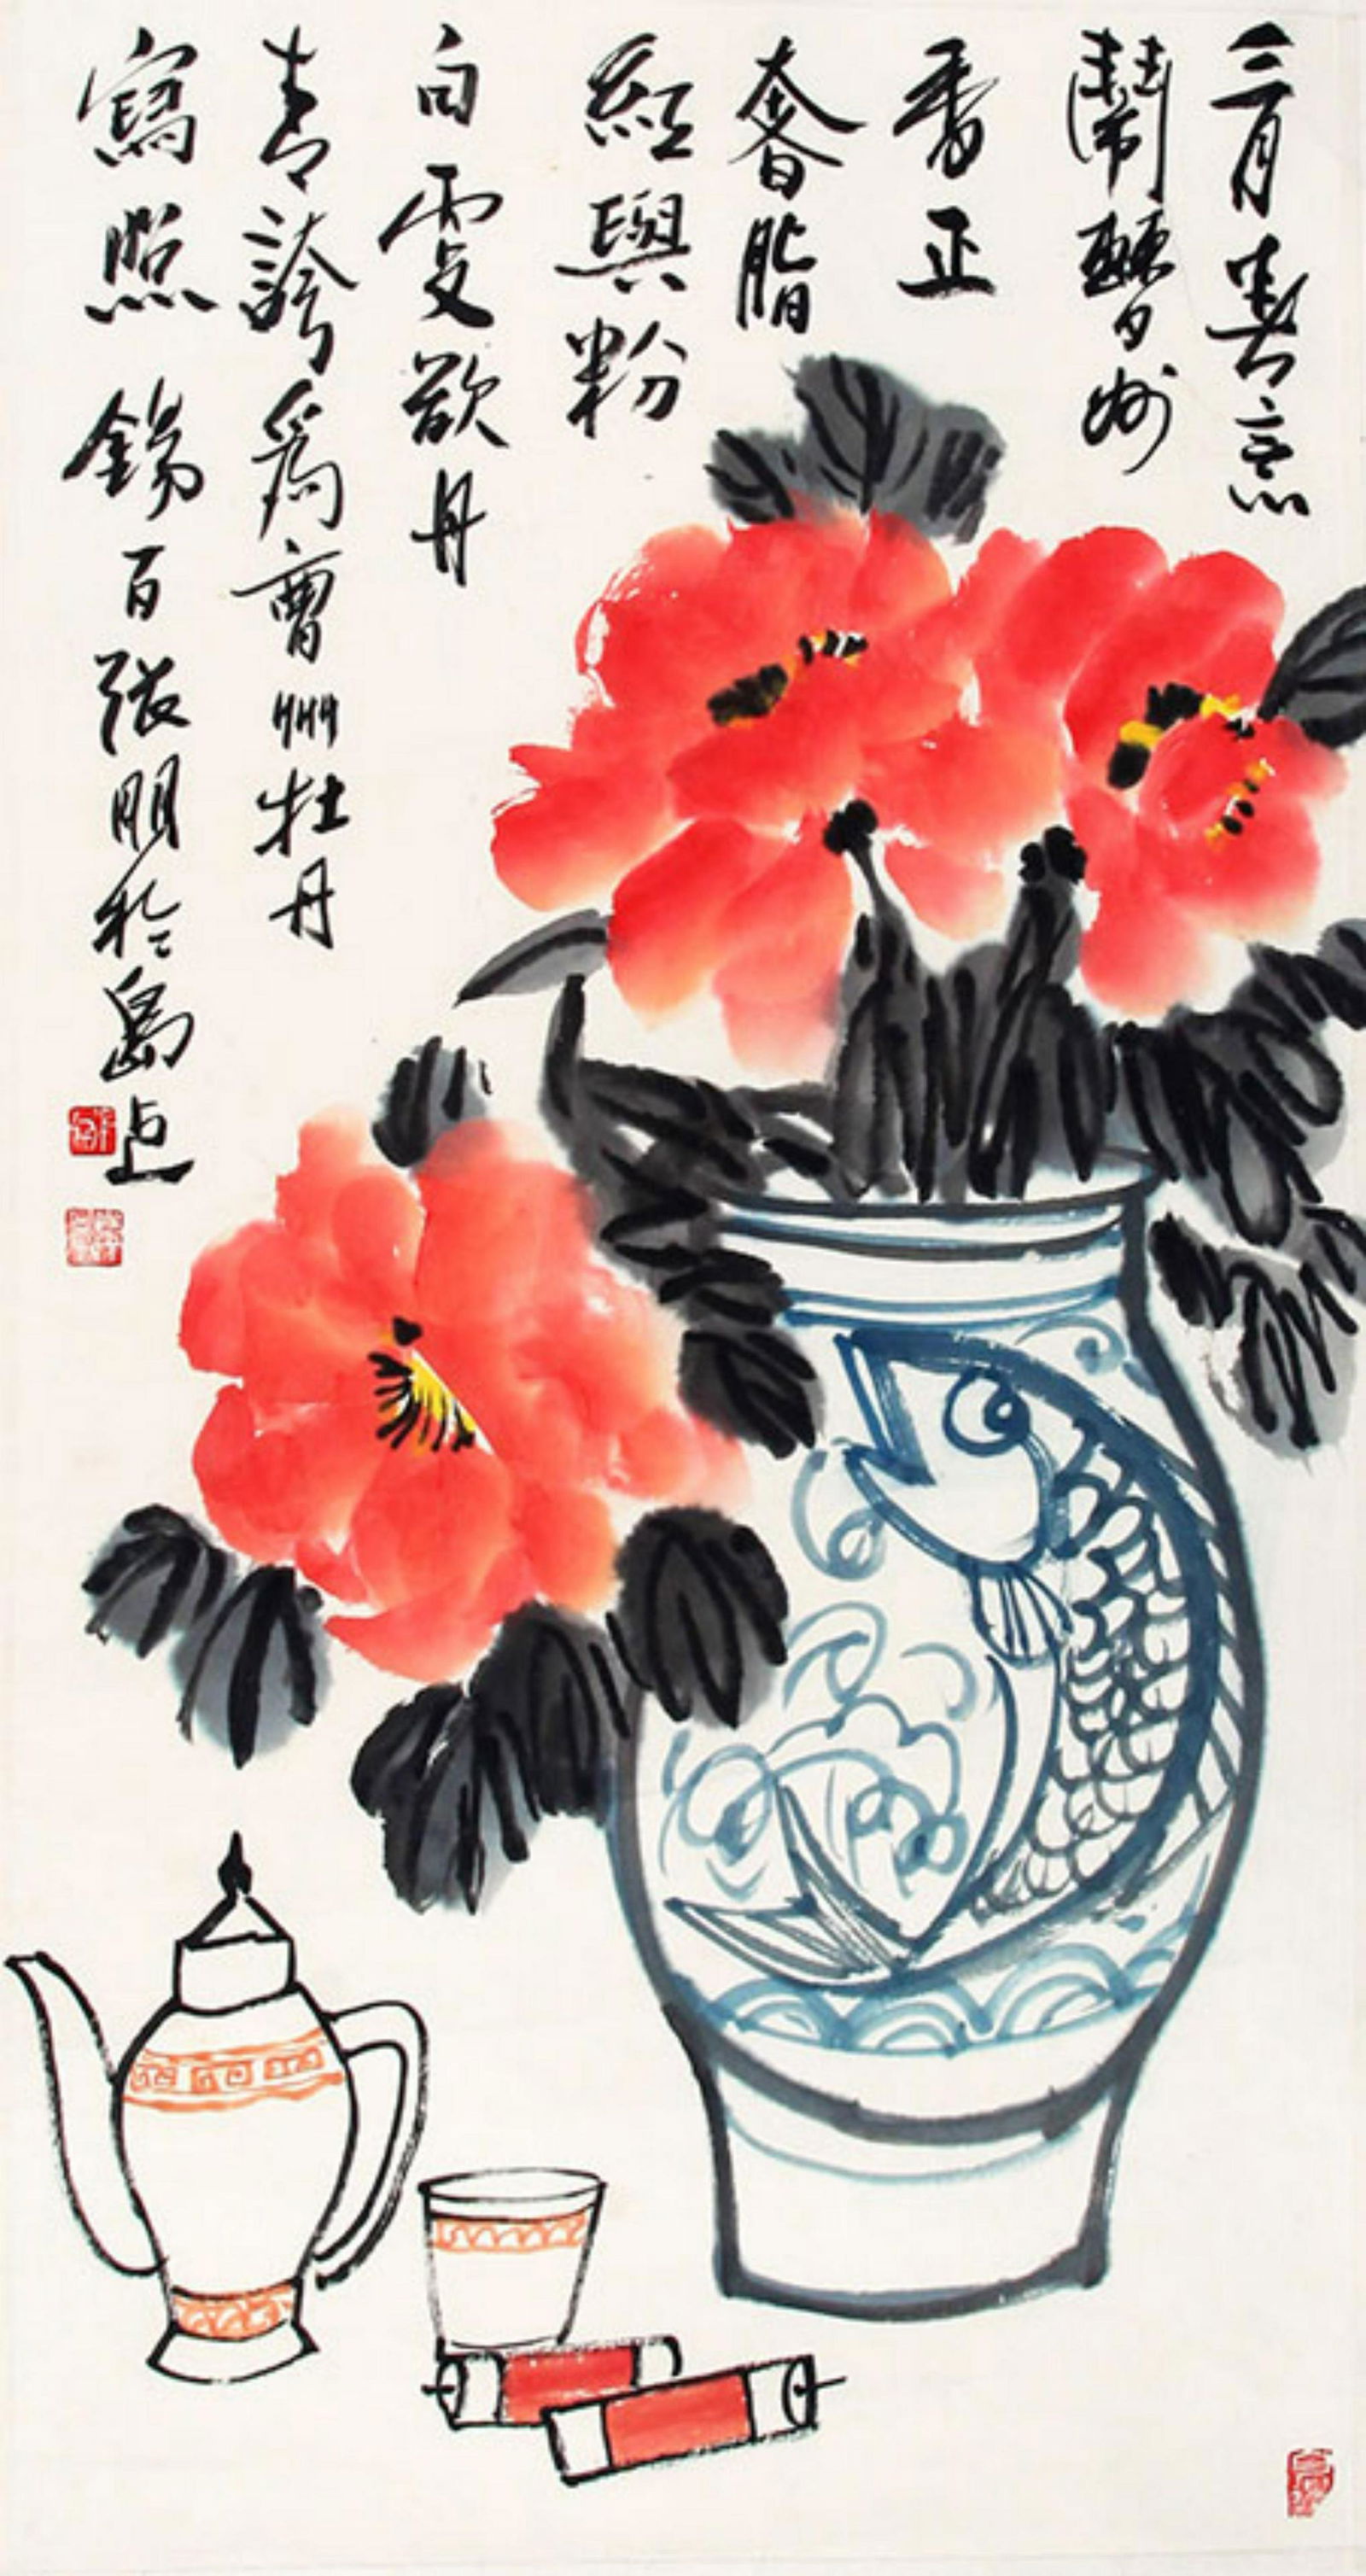 三月春意
鬧曹州
香正
奢脂
紅與粉
白更欲丹
青誇爲曹州牡丹
寫照 錫百張朋於島上